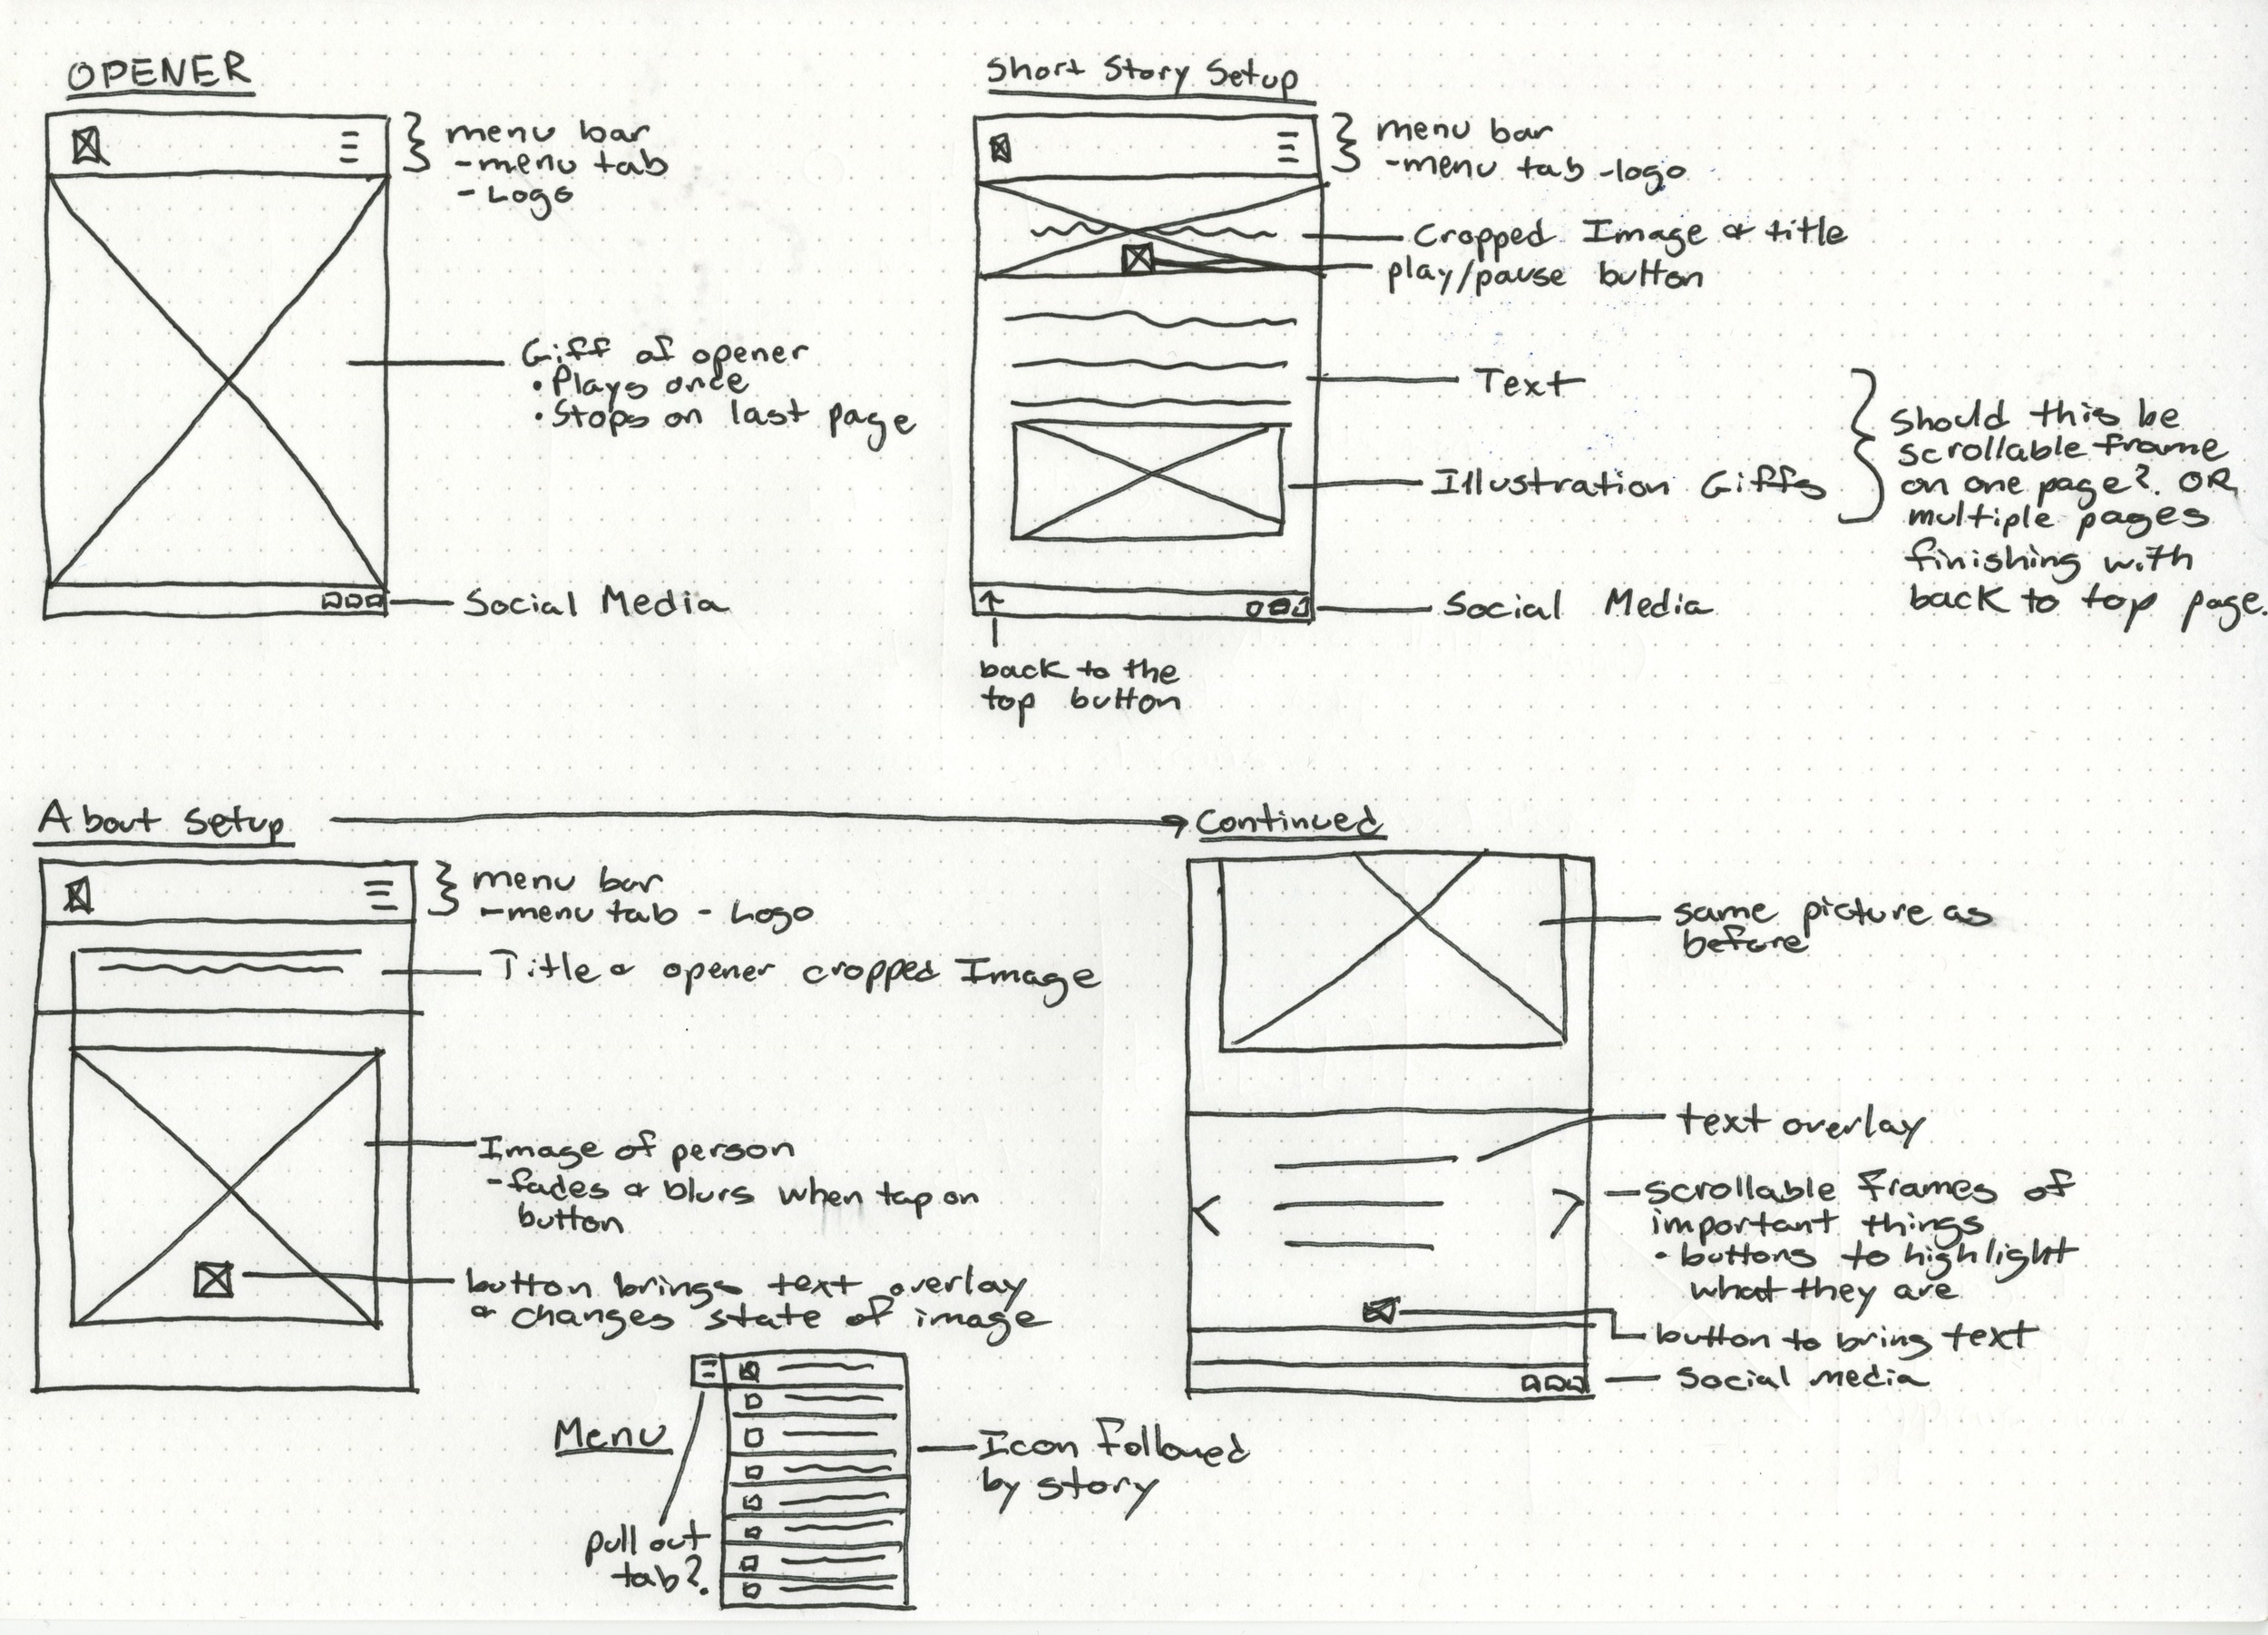 OPENER
menu bar
-menu tab
- Logo
Giff of opener
• Plays once
• Stops on last page
Social Media
Short Story Setup
menu bar
-menu tab -logo
Cropped Image & title
play/pause button
Text
Illustration Giffs
Should this be
scrollable frame
on one page?. OR
multiple pages
finishing with
back to top page.
Social Media
back to the
top button
About Setup
menu bar
-menu tab - Logo
Title & opener cropped Image
Image of person
-fades & blurs when tap on
button
button brings text overlay
& changes state of image
Continued
same picture as
before
text overlay
scrollable frames of
important things
• buttons to highlight
what they are
button to bring text
Social media
Menu
pull out
tab?.
Icon followed
by story